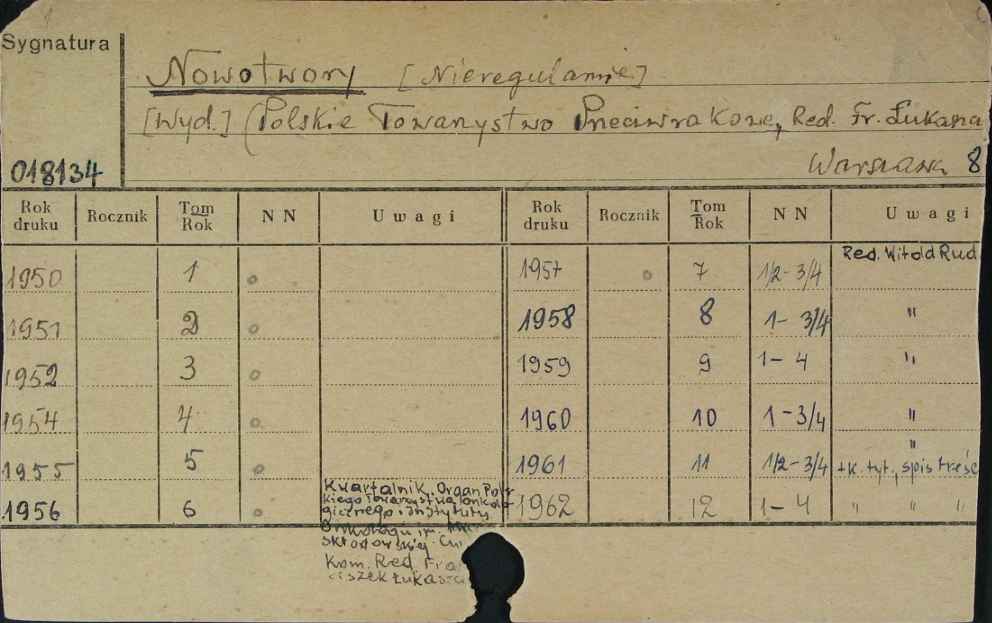 Sygnatura
Nowotwory [Nieregularnie]
[Wyd.] (Polskie Towarzystwo Przeciwrakowe, Red. Fr. Łukasza
Warszawa 8
018134
Rok druku Rocznik Tom Rok NN Uwagi Rok druku Rocznik Tom Rok NN Uwagi
Red. Witold Rud
1950 1 o 1957 o 7 1/2-3/4
1951 2 o 1958 8 1-3/4 "
1952 3 o 1959 9 1-4 "
1954 4 o 1960 10 1-3/4 "
"
1955 5 o 1961 11 1/2-3/4 +k. tyt., spis treśc
1956 6 o 1962 12 1-4 " " "
Kwartalnik. Organ Pols
kiego Towarzystwa Onkolo
gicznego i Instytutu
Onkologii im.
Skłodowskiej Cu
Kom. Red. Fra
ciszek Łukasz